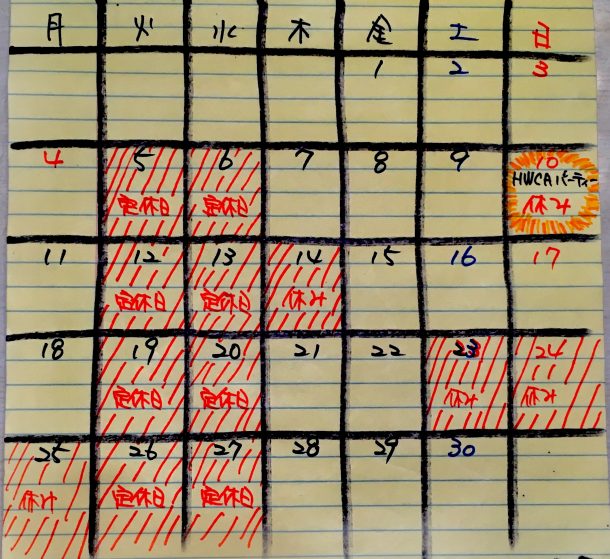 月 火 水 木 金 土 日
1 2 3
4 5 6 7 8 9 10
HWCAパーティー
定休日 定休日 休み
11 12 13 14 15 16 17
定休日 定休日 休み
18 19 20 21 22 23 24
定休日 定休日 休み 休み
25 26 27 28 29 30
休み 定休日 定休日